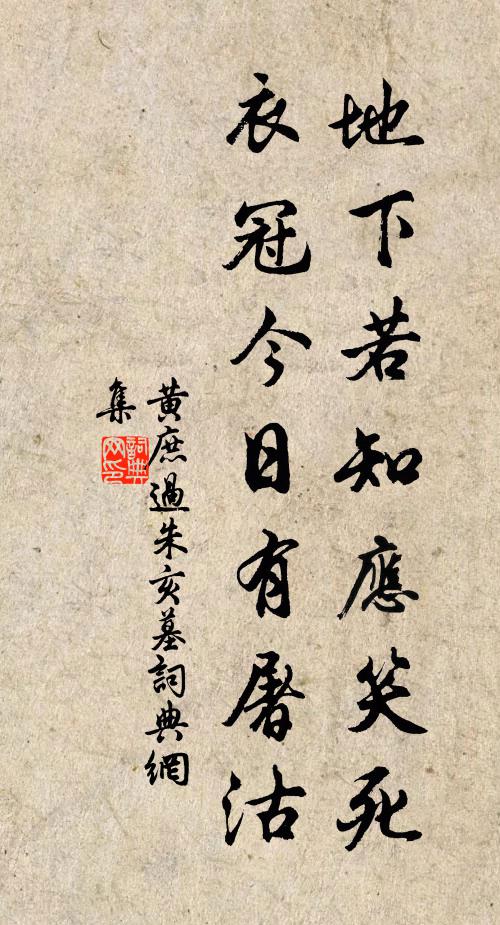 地下若知應笑死
衣冠今日有屠沽
黃庶過朱亥墓詞典網
集
詞典
網印